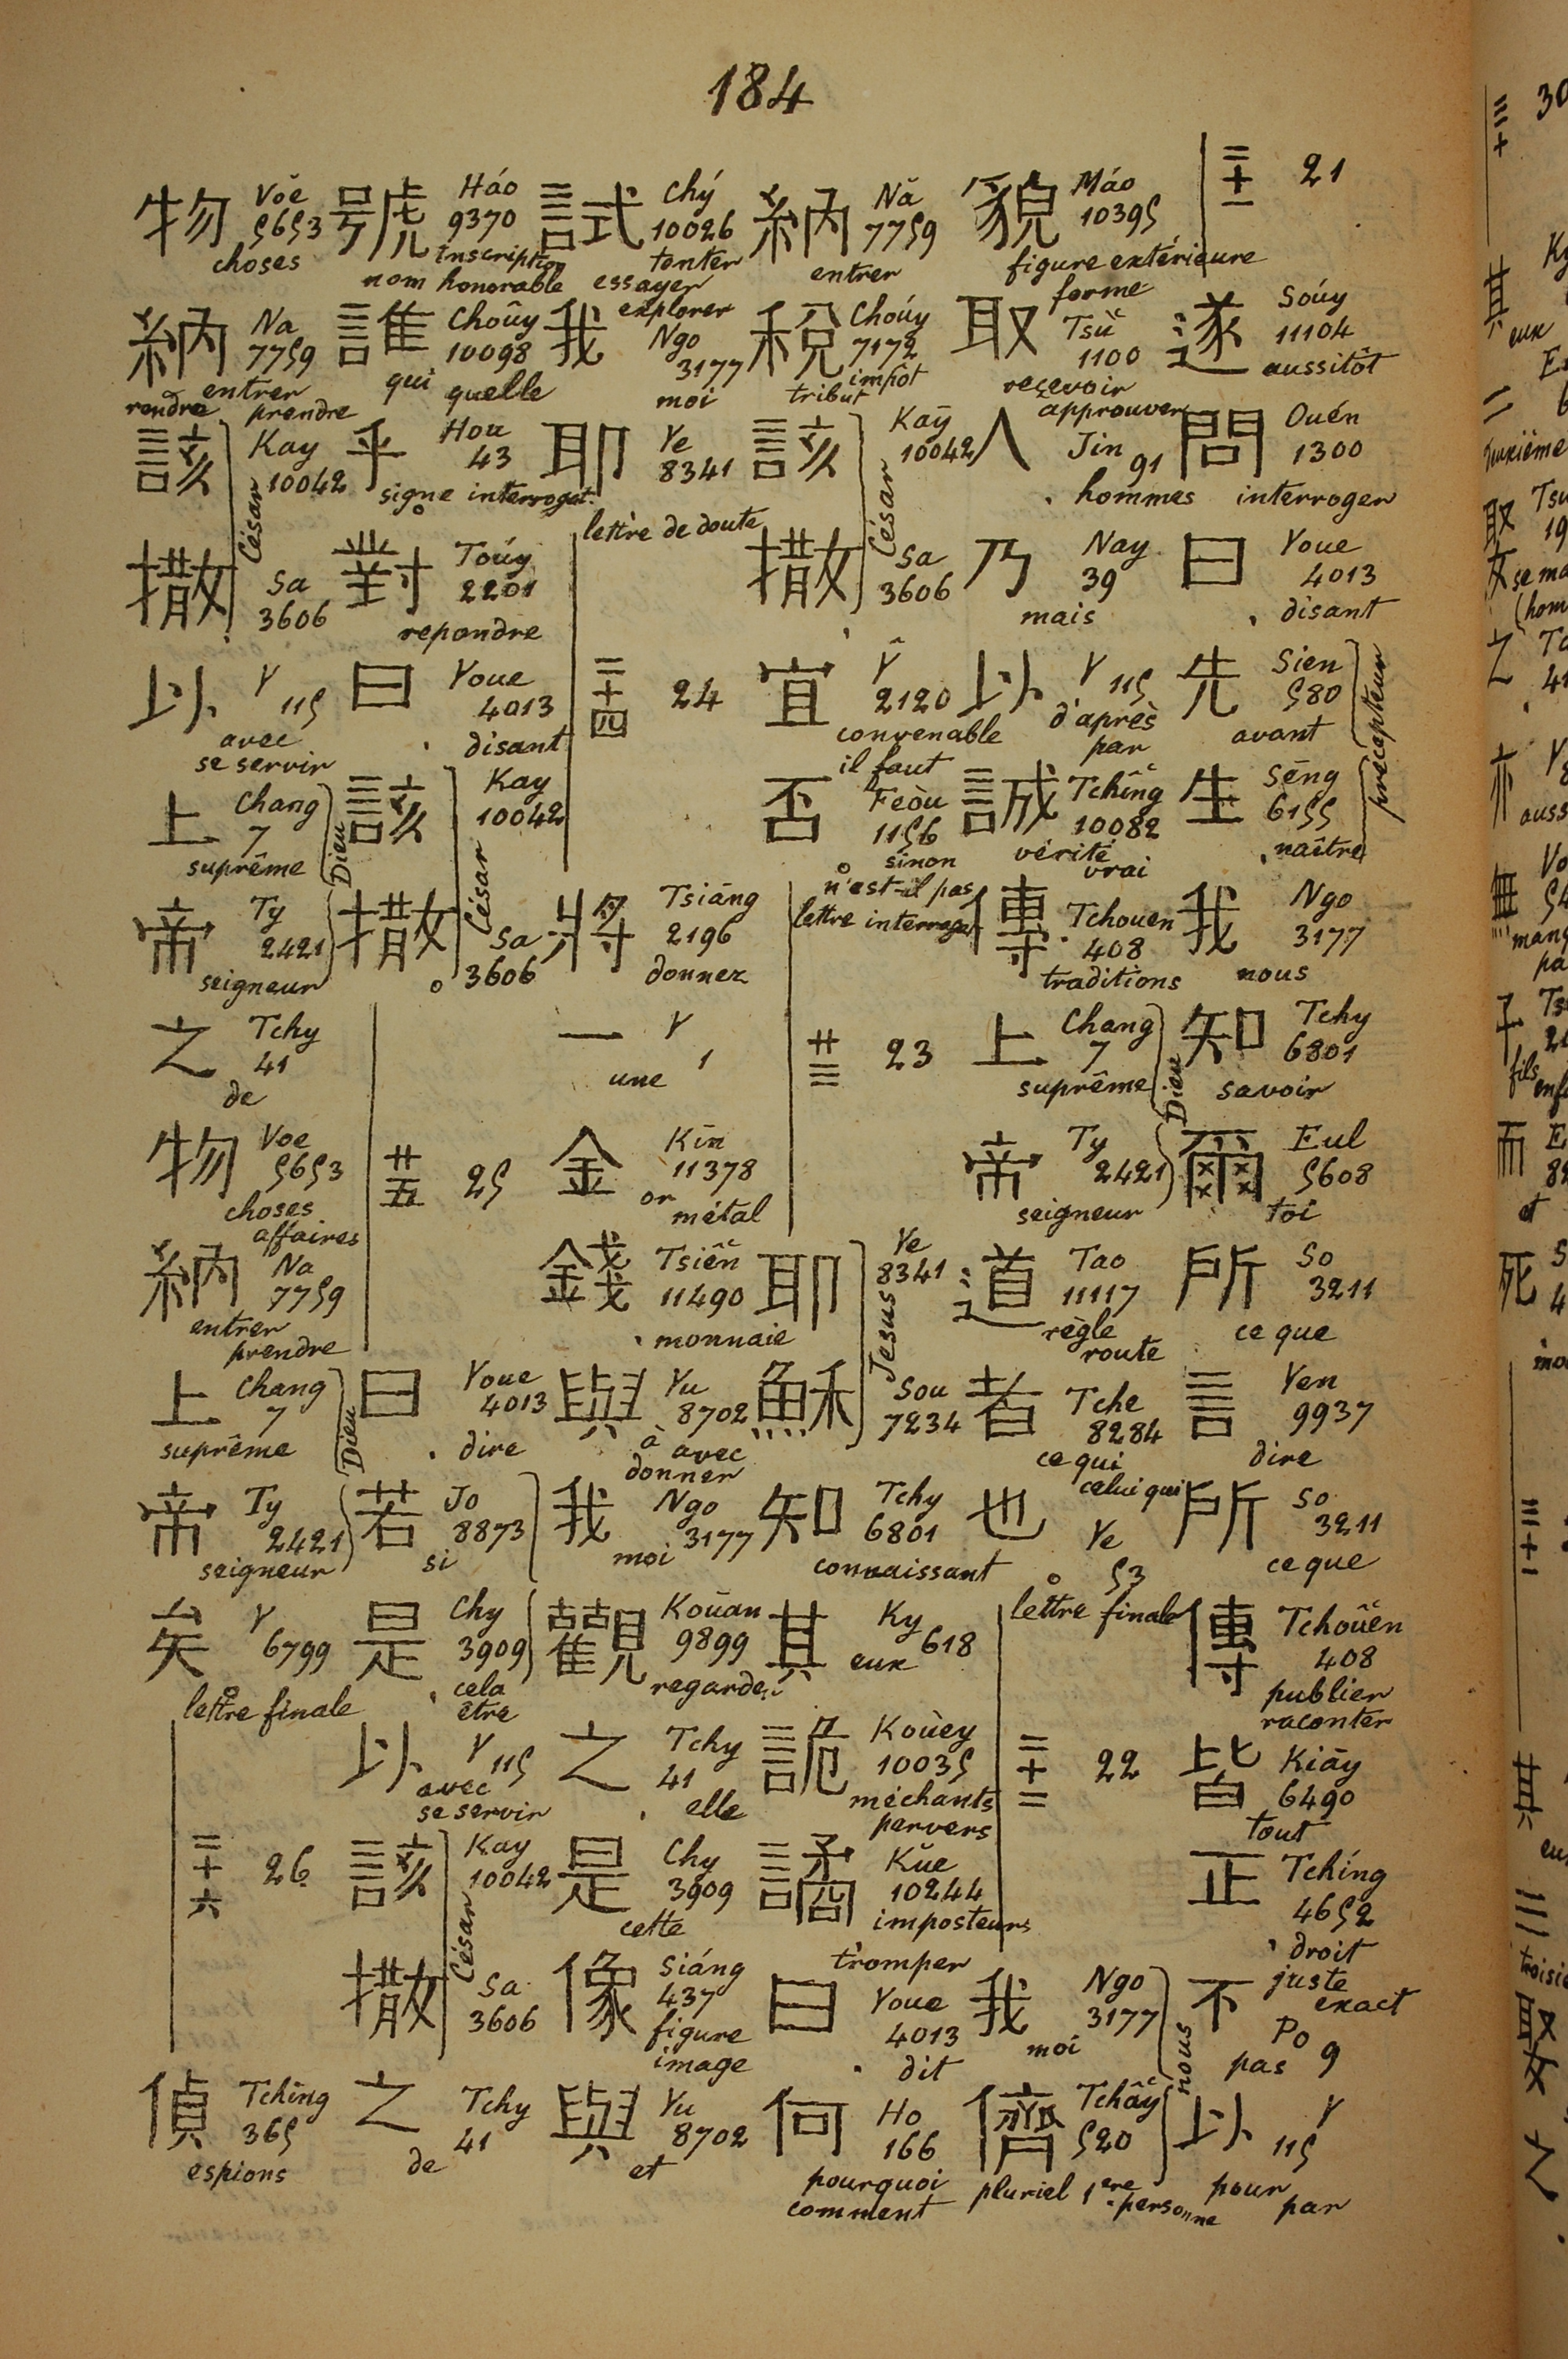 184
二十一 21
遂 Soúy 11104 aussitôt
問 Ouén 1300 interroger
曰 Youe 4013 disant
先 Sien 580 avant
生 Sēng 6155 naître
précepteur
我 Ngo 3177 nous
知 Tchy 6801 savoir
爾 Eul 5608 toi
所 So 3211 ce que
言 Yen 9937 dire
所 So 3211 ce que
傳 Tchouên 408 publier raconter
皆 Kiāy 6490 tout
正 Tchíng 4652 droit juste exact
不 Po 9 pas
以 Y 115 pour par
貌 Máo 10395 figure extérieure forme
取 Tsŭ 1100 recevoir approuver
人 Jin 91 hommes
乃 Nay 39 mais
以 Y 115 d'après par
誠 Tchîng 10082 vérité vrai
傳 Tchouen 408 traditions
上 Chang 7 suprême
帝 Ty 2421 seigneur
Dieu
道 Tao 11117 règle route
者 Tche 8284 ce qui celui qui
也 Ye 53 lettre finale
二十二 22
我 Ngo 3177 moi
儕 Tchây 520 pluriel 1ere personne
nous
納 Nă 7759 entrer
稅 Choúy 7172 impôt tribut
該 Kaȳ 10042
撒 Sa 3606
César
宜 Ŷ 2120 convenable il faut
否 Feòu 1156 sinon n'est-il pas lettre interrogat.
廿三 23
耶 Ye 8341
穌 Sou 7234
Jesus
知 Tchy 6801 connaissant
其 Ky 618 eux
詭 Kouèy 10035 méchants pervers
譎 Kŭe 10244 imposteurs tromper
曰 Youe 4013 dit
何 Ho 166 pourquoi comment
試 Chý 10026 tenter essayer explorer
我 Ngo 3177 moi
耶 Ye 8341 lettre de doute
二十四 24
將 Tsiāng 2196 donnez
一 Y 1 une
金 Kīn 11378 or métal
錢 Tsiên 11490 monnaie
與 Yu 8702 à avec donner
我 Ngo 3177 moi
觀 Koūan 9899 regarder
之 Tchy 41 elle
是 Chy 3909 cette
像 Siáng 437 figure image
與 Yu 8702 et
號 Háo 9370 inscription nom honorable
誰 Choûy 10098 qui quelle
乎 Hou 43 signe interrogat.
對 Toúy 2201 repondre
曰 Youe 4013 disant
該 Kay 10042
撒 Sa 3606
César
廿五 25
曰 Youe 4013 dire
若 Jo 8873 si
是 Chy 3909 cela être
以 Y 115 avec se servir
該 Kay 10042
撒 Sa 3606
César
之 Tchy 41 de
物 Vŏe 5653 choses
納 Na 7759 entrer rendre prendre
該 Kay 10042
撒 Sa 3606
César
以 Y 115 avec se servir
上 Chang 7 suprême
帝 Ty 2421 seigneur
Dieu
之 Tchy 41 de
物 Voe 5653 choses affaires
納 Na 7759 entrer prendre
上 Chang 7 suprême
帝 Ty 2421 seigneur
Dieu
矣 Y 6799 lettre finale
二十六 26
偵 Tchīng 365 espions